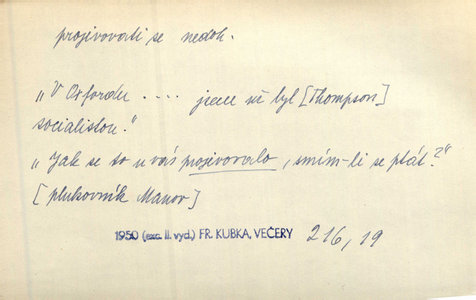 projevovati se nedok.
„V Oxfordu .... jsem už byl [Thompson]
socialistou."
„Jak se to u vás projevovalo, smím-li se ptát?"
[plukovník Manov]
1950 (exc. II. vyd.) FR. KUBKA, VEČERY 216, 19